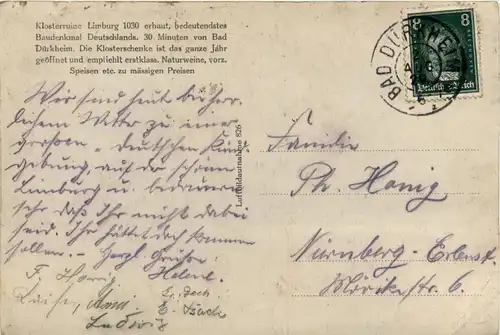 Klosterruine Limburg 1030 erbaut, bedeutendstes
Baudenkmal Deutschlands. 30 Minuten von Bad
Dürkheim. Die Klosterschenke ist das ganze Jahr
geöffnet und empfiehlt erstklass. Naturweine, vorz.
Speisen etc. zu mässigen Preisen
BAD DÜRKHEIM
8 8
Deutsches Reich
Wir sind heut bei herr-
lichem Wetter zu einer
grossen "Deutschen Kund
gebung, auf der schönen
Limburg u. bedauern
sehr daß Ihr nicht dabei
seid. Ihr hättet doch kommen
sollen. - Herzl. Grüße
F. Honig Helene
Luise, Anni
Ludwig
Luftbildaufnahme 826
Familie
Ph. Honig
Nürnberg-Erlenst.